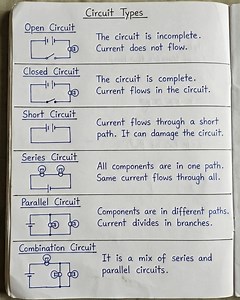 Circuit Types
Open Circuit
The circuit is incomplete.
Current does not flow.
Closed Circuit
The circuit is complete.
Current flows in the circuit.
Short Circuit
Current flows through a short
path. It can damage the circuit.
Series Circuit
All components are in one path.
Same current flows through all.
Parallel Circuit
Components are in different paths.
Current divides in branches.
Combination Circuit
It is a mix of series and
parallel circuits.